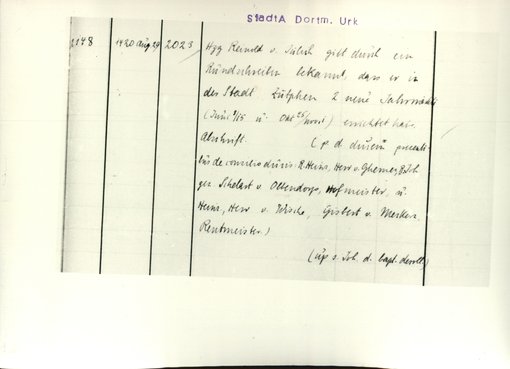 StadtA Dortm. Urk
2148 1420 Aug 29 2023
Hzg Reinold v. Jülich gibt durch ein
Rundschreiben bekannt, dass er in
der Stadt Zutphen 2 neue Jahrmärkte
(Juni 9/15 u. Okt 25/ ) errichtet hat.
Abschrift. (p d ducem presenti
bus de consilio dominis R. Heinr, Herr v. Ghemen, R. Joh
gen. Schelart v. Obbendorp, Hofmeister, u.
Heinr, Herr v. Wische, Gisbert v. Meker,
Rentmeister.)
( s. Joh. d. bapt. )